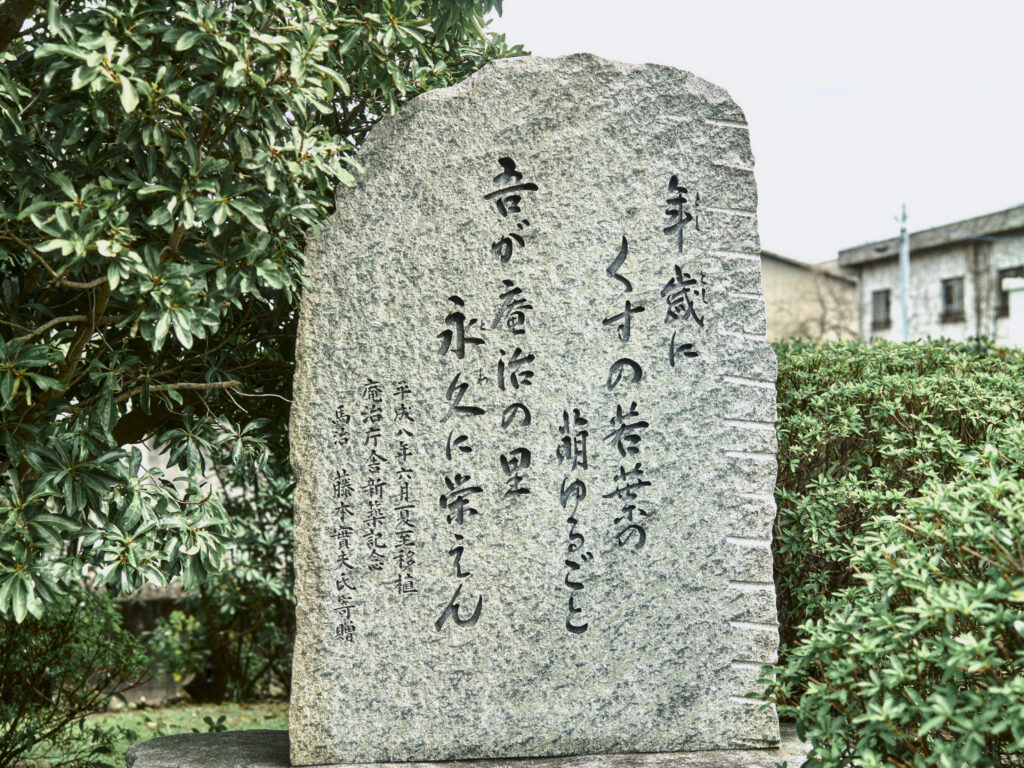 年歳に
くすの若葉の
萌ゆるごと
吾が庵治の里
永久に栄えん
とわ
平成八年六月夏至移植
庵治庁舎新築記念
馬治 藤本 夫氏寄贈